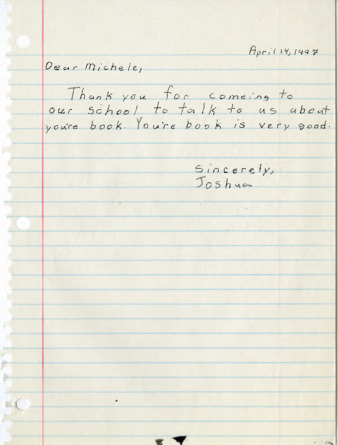 April 14, 1997
Dear Michele,
Thank you for comeing to
our school to talk to us about
you're book. You're book is very good.
Sincerely,
Joshua